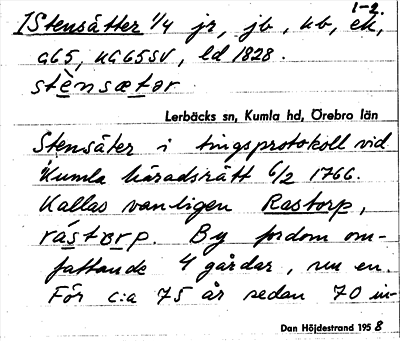 1-2.
1Stensätter 1/4 jr, jb, ub, ek,
G65, NG65SV, ld 1828.
stènsætər
Lerbäcks sn, Kumla hd, Örebro län
Stensäter i tingsprotokoll vid
Kumla häradsrätt 6/2 1766.
Kallas vanligen Rastorp,
rástorp. By fordom om-
fattande 4 gårdar, nu en.
För c:a 75 år sedan 70 in-
Dan Höjdestrand 1958